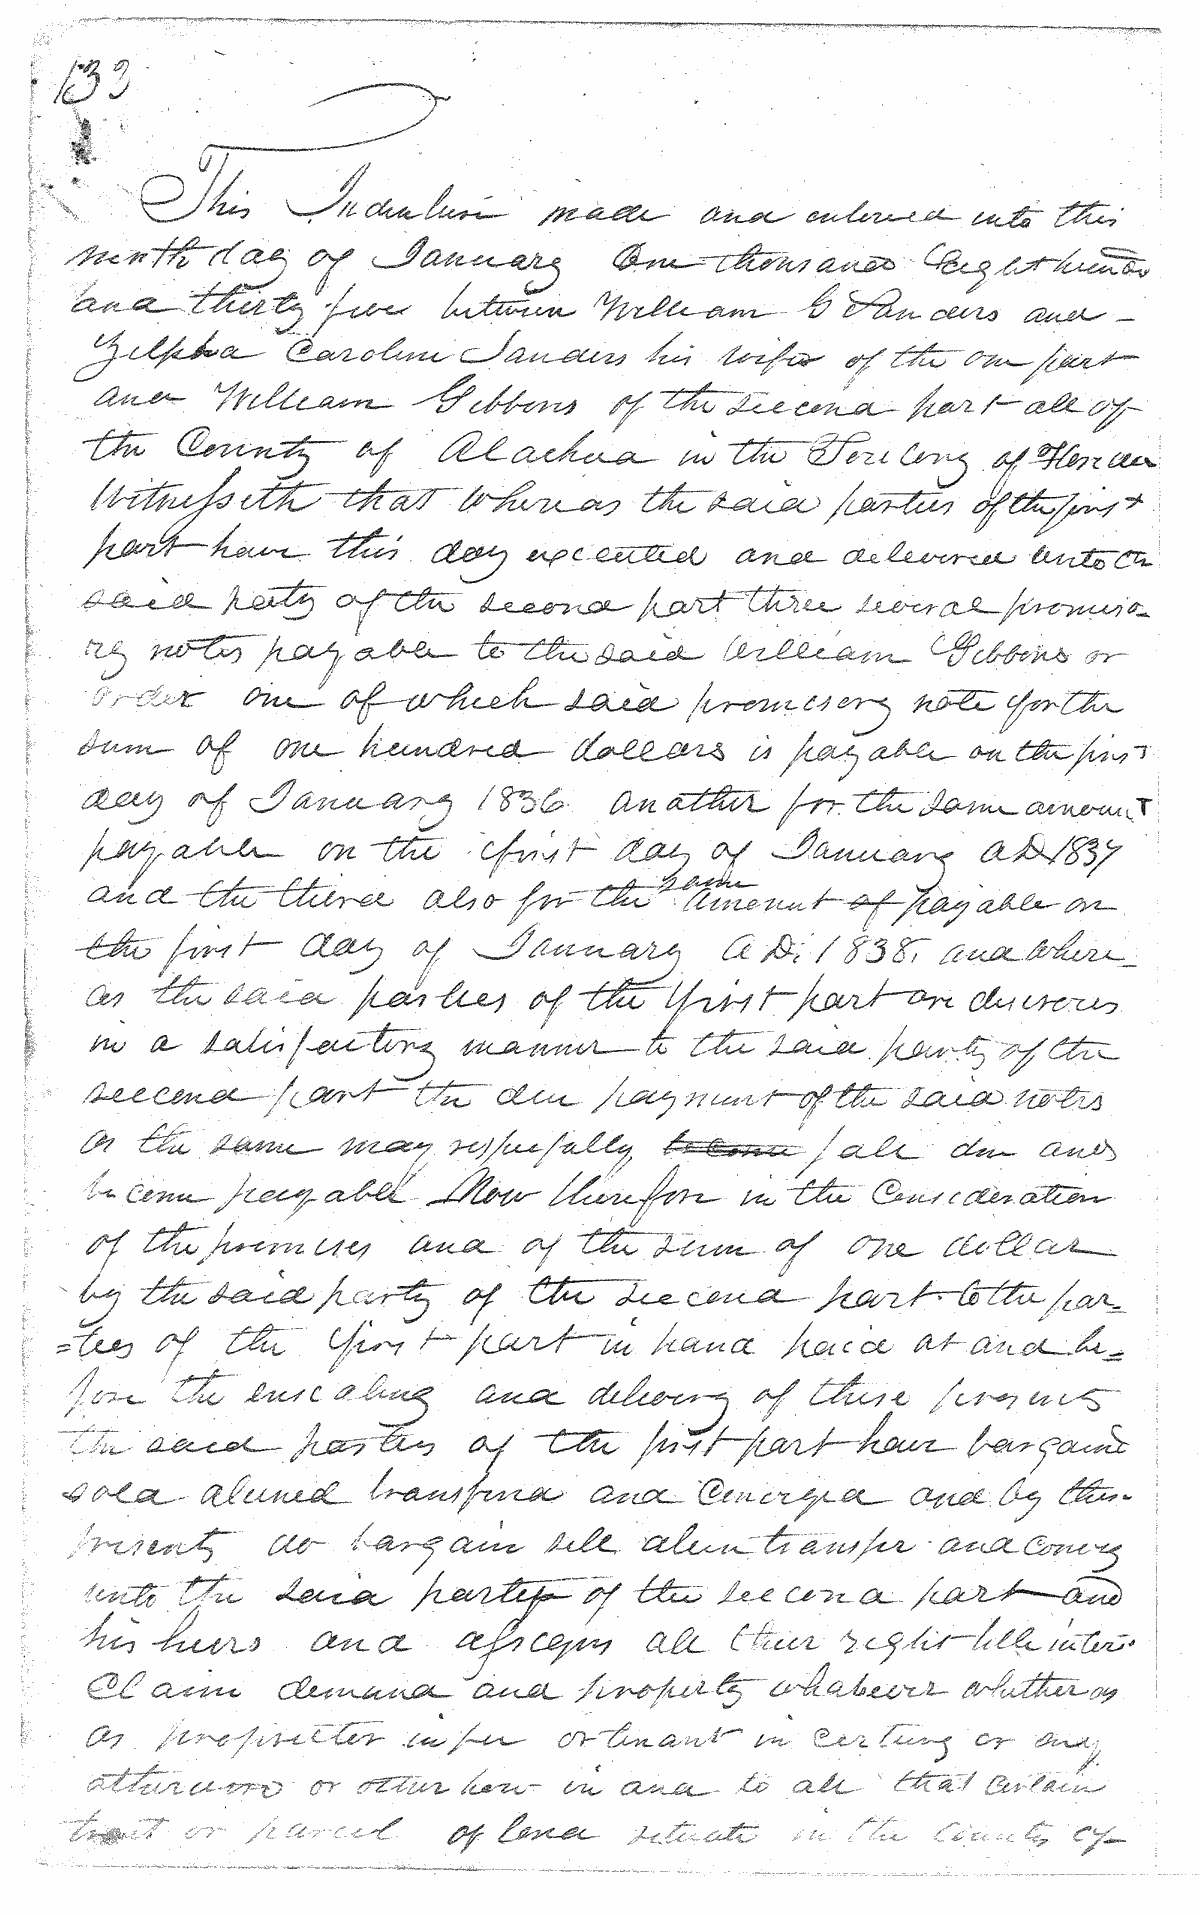 133
This Indenture made and entered into this
ninth day of January One thousand Eight hundr
and thirty five between William G Sanders and -
Zilpha Caroline Sanders his wife of the one part
and William Gibbons of the second part all of
the County of Alachua in the Teritory of Floridа
Witnesseth that whereas the said parties of the first
part have this day executed and delivered unto the
said party of the second part three several promiso-
ry notes payable to the said William Gibbons or
order one of which said promisery note for the
sum of one hundred dollars is payable on the first
day of January 1836 another for the same amount
payable on the first day of January AD 1837
and the third also for the same amount of payable on
the first day of January A.D. 1838, and where-
as the said parties of the first part are desirous
in a satisfactory manner to the said party of the
second part the due payment of the said notes
as the same may respectfully become fall due and
become payable Now therefore in the Consideration
of the premises and of the sum of one dollar
by the said party of the second part to the par-
=ties of the first part in hand paid at and be-
fore the ensealing and delivery of these presents
the said parties of the first part have bargaind
sold aliened transferd and Conveyed and by these
presents do bargain sell alien transfer and convey
unto the said party of the second part and
his heirs and assigns all their right title inter
Claim demand and property whatever whether as
as proprietor in fee or tenant in certung or any
other how in and to all that certain
tract or parcel of land situate in the County of